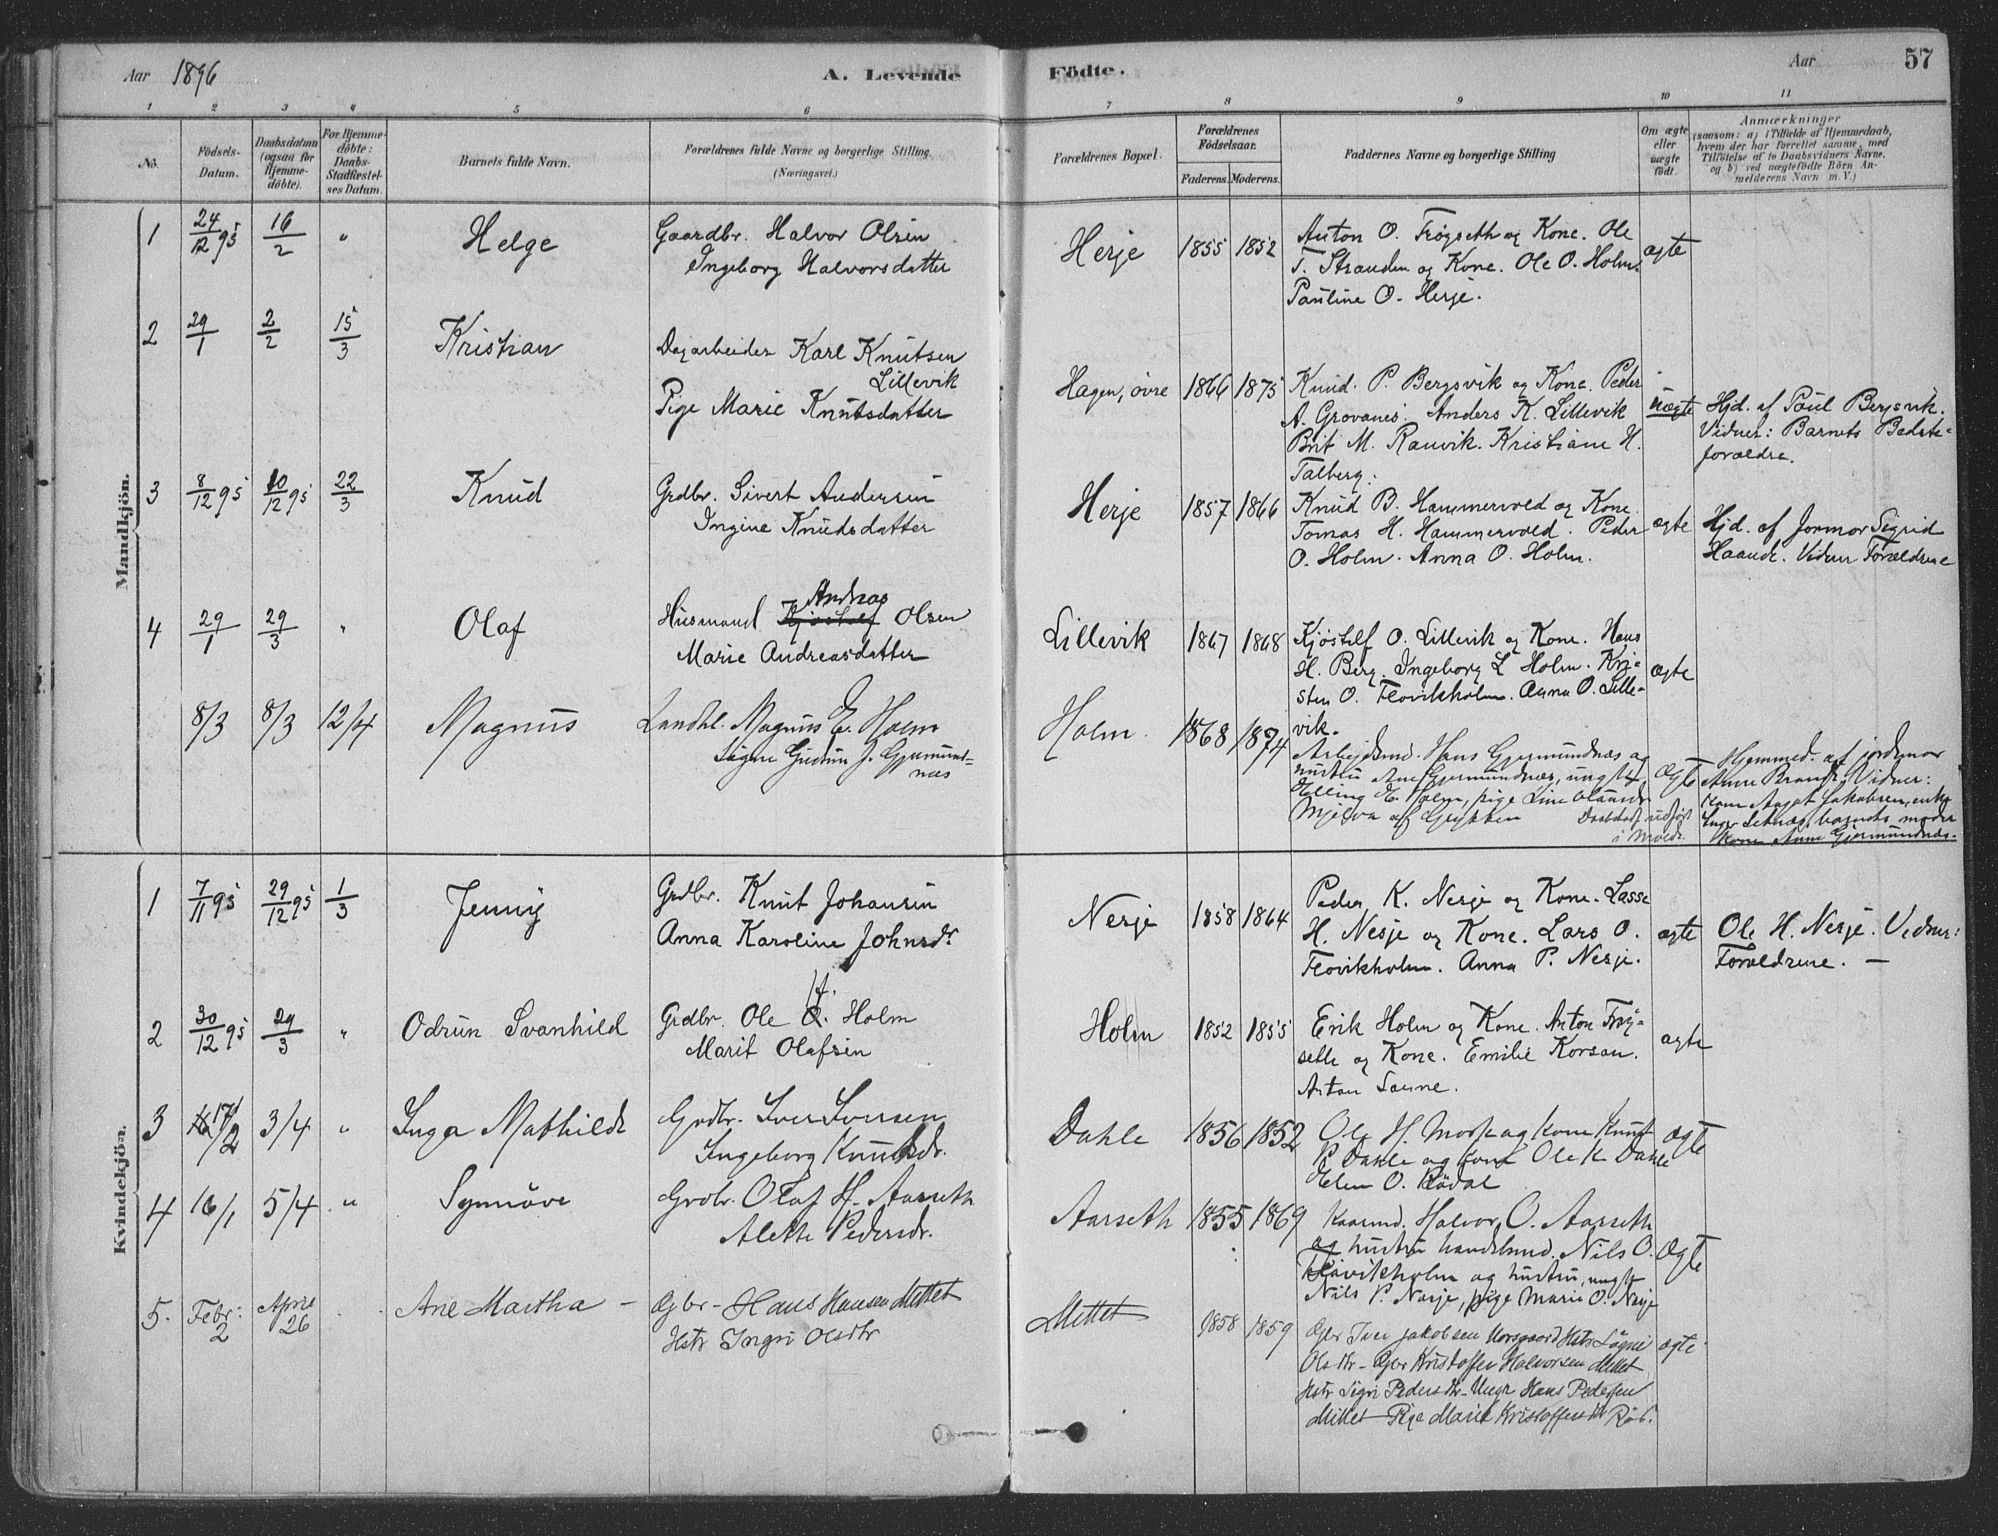 Aar 1896
A. Levende
Födte.
Aar
57
1 2 3 4 5 6 7 8 9 10 11
No.
Födsels-
Datum.
Daabsdatum
(ogsaa for
Hjemme-
döbte).
For Hjemme-
döbte:
Daabs-
Stadfæstel-
ses Datum.
Barnets fulde Navn.
Forældrenes fulde Navne og borgerlige Stilling
(Næringsvei.)
Forældrenes Bopæl.
Forældrenes
Födselsaar.
Faderens. Moderens.
Faddernes Navne og borgerlige Stilling
Om ægte
eller
uægte
födt.
Anmærkninger
(saasom: a) i Tilfælde af Hjemmedaab,
hvem der har forrettet samme, med
Tilföielse af to Daabsvidners Navne.
og b) ved uægtefödte Börn An-
melderens Navn m. V.)
Mandkjön.
1 24/12 95 16/2 " Helge
Gaardbr. Halvor Olsen
Ingeborg Halvorsdatter
Herje 1855 1852
Anton O. Frøyseth og Kone. Ole
T. Stranden og Kone. Ole O. Holm.
Pauline O. Herje.
ægte
2 29/1 2/2 15/3 Kristian
Dagarbeider Karl Knutsen
Lillevik
Pige Marie Knutsdatter
Hagen, øvre 1866 1875
Knud P. Bergsvik og Kone. Peder
A. Grovanes. Anders K. Lillevik
Brit M. Ranvik. Kristiane H.
Talberg.
uægte
Hjd. af Paul Bergsvik.
Vidner: Barnets Bedste-
forældre.
3 8/12 95 10/12 95 22/3 Knud
Grdbr. Sivert Andersen
Ingine Knudsdatter
Herje 1857 1866
Knud B. Hammervold og Kone.
Tomas H. Hammervold. Peder
O. Holm. Anna O. Holm.
ægte
Hjd. af Jormor Sigrid
Haande. Vidner Forældrene
4 29/1 29/3 " Olaf
Andreas
Husmand Kjøstolf Olsen
Marie Andreasdatter
Lillevik 1867 1868
Kjøstolf O. Lillevik og Kone. Hans
H. Berg. Ingeborg L Holm. Kri-
sten O. Flovikholm. Anna O. Lille-
vik.
ægte
8/3 8/3 12/4 Magnus
Landhl. Magnus E. Holm
Signe Gudrun J. Gjermund-
næs
Holm 1868 1874
Arbeidsmd. Hans Gjermundnæs og
hustru Ane Gjermundnæs, ungk.
Elling E. Holm, pige Line
Mjelva af Grytten Daabstadf. udført
i Molde.
Ægte
Hjemmed. af jordemor
Anne Brandt, Vidner:
Kone Aagot Jakobsen, enke
Inger Setnæs, barnets moder
kone Anne Gjermundnæs.
Kvindekjön.
1 7/11 95 29/12 95 1/3 Jenny
Grdbr. Knut Johansen
Anna Karoline Johnsdr.
Nesje 1858 1864
Peder K. Nesje og Kone. Lasse
H. Nesje og Kone. Lars O.
Flovikholm. Anna P. Nesje.
ægte
Ole H. Nesje. Vidner:
Forældrene. —
2 30/12 95 29/3 " Odrun Svanhild
H.
Grdbr. Ole O. Holm
Marit Olafsen
Holm 1852 1855
Erik Holm og Kone. Anton Frøy-
seth og Kone. Emilie Korsan.
Anton Sanne.
ægte
3 17/2 3/4 " Inga Mathilde
Grdbr. Iver Iversen
Ingeborg Knudsdr.
Dahle 1856 1852
Ole H. Mork og kone Knut
P. Dahle og kone Ole K Dahle
Elen O. Rödal
Ægte
4 16/1 5/4 " Synnöve
Grdbr. Olaf H. Aarseth
Alette Pedersdr.
Aarseth 1855 1869
Kaarmd. Halvor O. Aarseth
og hustru handelsmd. Nils O.
Flovikholm og hustru, ungk.
Nils P. Nesje, pige Marie O. Nesje
Ægte
5. Febr: 2 April 26 Ane Martha —
Gbr – Hans Hansen Mittet
Hstr Ingri Olsdtr
Mittet 1858 1859
Gbr Iver Jakobsen Horsgaard Hstr Sögni
Olsdtr – Gbr Kristoffer Halvorsen Mittet
Hstr Sigri Pedersdtr – Ungk Hans Pedersen
Mittet – Pige Marit Kristoffersdtr Röd.
ægte